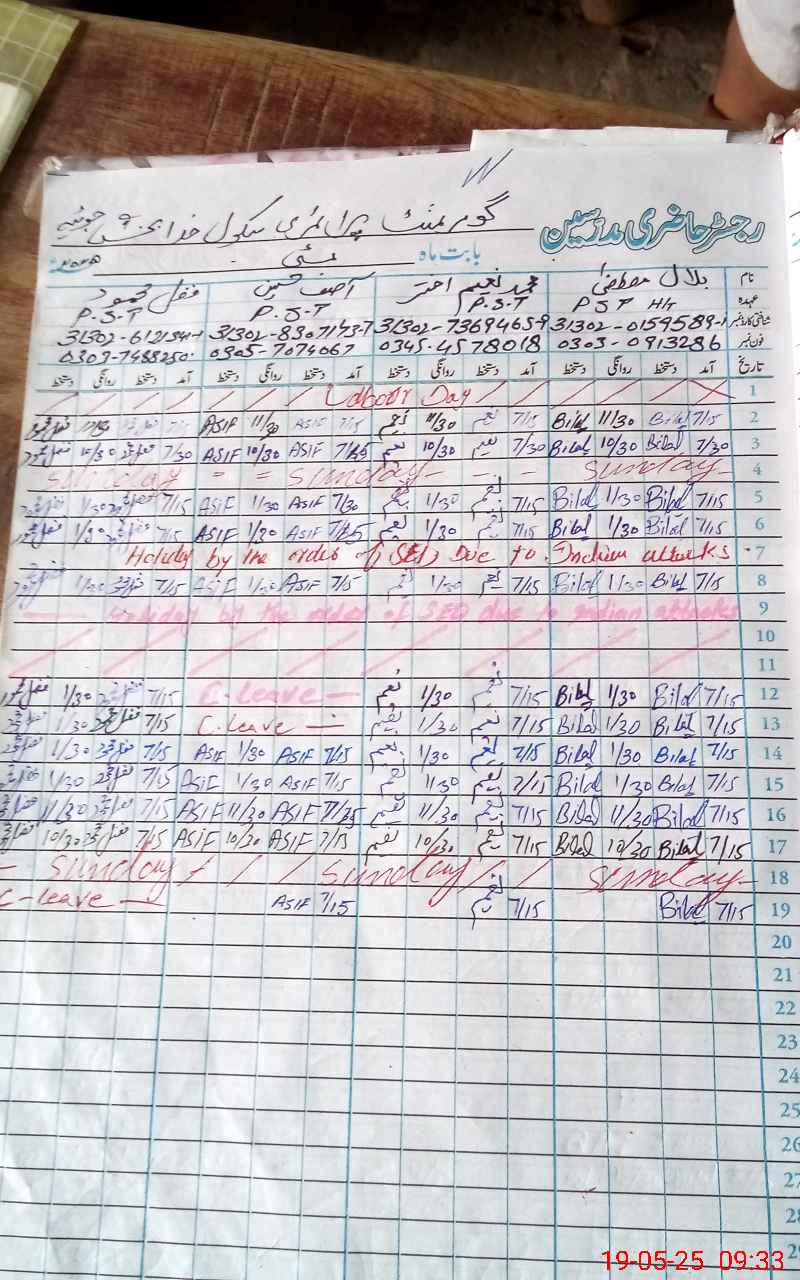 رجسٹر حاضری مدرسین گورنمنٹ پرائمری سکول خدا بخش
بابت ماہ مئی
نام بلال مصطفیٰ محمد نعیم اختر آصف حسین
عہدہ PST Ht P.S.T P.S.T P.S.T
شناختی کارڈ نمبر 31302-0159589-1 31302-7369465-9 31302-8307143-7
فون نمبر 0303-0913286 0345-4578018 0305-7074067
تاریخ آمد دستخط روانگی دستخط آمد دستخط روانگی دستخط آمد دستخط روانگی دستخط آمد دستخط روانگی دستخط
1 Labour Day
2 7/15 Bilal 11/30 Bilal 7/15 نعیم 11/30 نعیم 7/15 ASIF 11/30 ASIF
3 7/30 Bilal 10/30 Bilal 7/30 نعیم 10/30 نعیم ASIF 10/30 ASIF 7/30 10/30
4 Sunday - - - Sunday = = Sunday
5 7/15 Bilal 1/30 Bilal 7/15 نعیم 1/30 نعیم 7/30 ASIF 1/30 ASIF 7/15 1/30
6 7/15 Bilal 1/30 Bilal 7/15 نعیم 1/30 نعیم ASIF 1/30 ASIF 7/15 1/30
7 Holiday by the order of SED Due to Indian attacks
8 7/15 Bilal 1/30 Bilal 7/15 نعیم 1/30 نعیم 7/15 ASIF 1/30 ASIF 7/15 1/30
9 Holiday by the order of SED due to indian attacks
10
11
12 7/15 Bilal 1/30 Bilal 7/15 نعیم 1/30 نعیم C-leave 7/15 1/30
13 7/15 Bilal 1/30 Bilal 7/15 نعیم 1/30 نعیم C.leave 7/15 1/30
14 7/15 Bilal 1/30 Bilal 7/15 نعیم 1/30 نعیم 7/15 ASIF 1/30 ASIF 7/15 1/30
15 7/15 Bilal 1/30 Bilal 7/15 نعیم 1/30 نعیم 7/15 ASIF 1/30 ASIF 7/15 1/30
16 7/15 Bilal 11/30 Bilal 7/15 نعیم 11/30 نعیم ASIF 11/30 ASIF 7/15 11/30
17 7/15 Bilal 10/30 Bilal 7/15 نعیم 10/30 نعیم 7/15 ASIF 10/30 ASIF 7/15 10/30
18 Sunday Sunday Sunday
19 7/15 Bilal 7/15 نعیم 7/15 ASIF C-leave
20
21
22
23
24
25
26
27
28
29
19-05-25 09:33